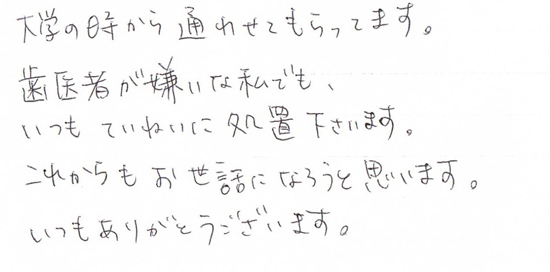 大学の時から通わせてもらってます。
歯医者が嫌いな私でも、
いつもていねいに処置下さいます。
これからもお世話になろうと思います。
いつもありがとうございます。